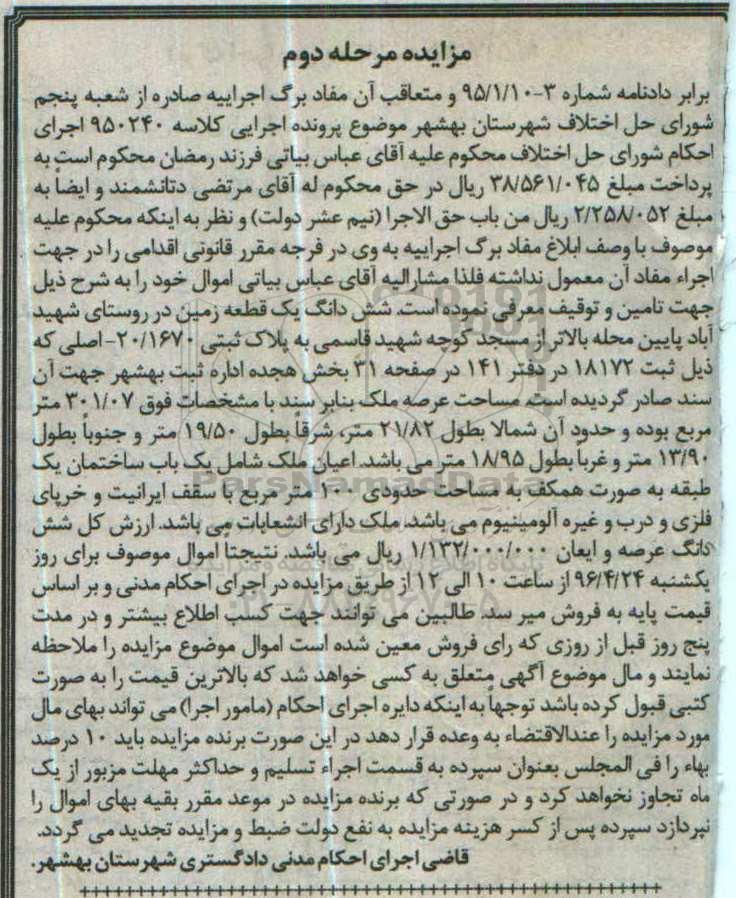 مزایده مرحله دوم
برابر دادنامه شماره ۳-۹۵/۱/۱۰ و متعاقب آن مفاد برگ اجراییه صادره از شعبه پنجم
شورای حل اختلاف شهرستان بهشهر موضوع پرونده اجرایی کلاسه ۹۵۰۲۴۰ اجرای
احکام شورای حل اختلاف محکوم علیه آقای عباس بیاتی فرزند رمضان محکوم است به
پرداخت مبلغ ۳۸/۵۶۱/۰۴۵ ریال در حق محکوم له آقای مرتضی دتانشمند و ایضاً به
مبلغ ۲/۲۵۸/۰۵۲ ریال من باب حق الاجرا (نیم عشر دولت) و نظر به اینکه محکوم علیه
موصوف با وصف ابلاغ مفاد برگ اجراییه به وی در فرجه مقرر قانونی اقدامی را در جهت
اجراء مفاد آن معمول نداشته فلذا مشارالیه آقای عباس بیاتی اموال خود را به شرح ذیل
جهت تامین و توقیف معرفی نموده است. شش دانگ یک قطعه زمین در روستای شهید
آباد پایین محله بالاتر از مسجد کوچه شهید قاسمی به پلاک ثبتی ۲۰/۱۶۷۰- اصلی که
ذیل ثبت ۱۸۱۷۲ در دفتر ۱۴۱ در صفحه ۳۱ بخش هجده اداره ثبت بهشهر جهت آن
سند صادر گردیده است. مساحت عرصه ملک بنابر سند با مشخصات فوق ۳۰۱/۰۷ متر
مربع بوده و حدود آن شمالا بطول ۲۱/۸۲ متر، شرقاً بطول ۱۹/۵۰ متر و جنوباً بطول
۱۳/۹۰ متر و غرباً بطول ۱۸/۹۵ متر می باشد. اعیان ملک شامل یک باب ساختمان یک
طبقه به صورت همکف به مساحت حدودی ۱۰۰ متر مربع با سقف ایرانیت و خرپای
فلزی و درب و غیره آلومینیوم می باشد. ملک دارای انشعابات می باشد. ارزش کل شش
دانگ عرصه و ایعان ۱/۱۳۲/۰۰۰/۰۰۰ ریال می باشد. نتیجتاً اموال موصوف برای روز
یکشنبه ۹۶/۴/۲۴ از ساعت ۱۰ الی ۱۲ از طریق مزایده در اجرای احکام مدنی و بر اساس
قیمت پایه به فروش میر سد. طالبین می توانند جهت کسب اطلاع بیشتر و در مدت
پنج روز قبل از روزی که رای فروش معین شده است اموال موضوع مزایده را ملاحظه
نمایند و مال موضوع آگهی متعلق به کسی خواهد شد که بالاترین قیمت را به صورت
کتبی قبول کرده باشد توجهاً به اینکه دایره اجرای احکام (مامور اجرا) می تواند بهای مال
مورد مزایده را عندالاقتضاء به وعده قرار دهد در این صورت برنده مزایده باید ۱۰ درصد
بهاء را فی المجلس بعنوان سپرده به قسمت اجراء تسلیم و حداکثر مهلت مزبور از یک
ماه تجاوز نخواهد کرد و در صورتی که برنده مزایده در موعد مقرر بقیه بهای اموال را
نپردازد سپرده پس از کسر هزینه مزایده به نفع دولت ضبط و مزایده تجدید می گردد.
قاضی اجرای احکام مدنی دادگستری شهرستان بهشهر.
ParsNamadData